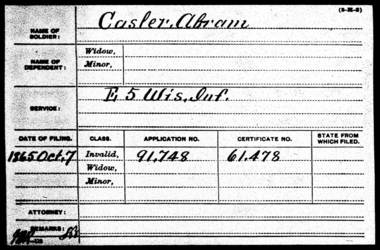 (3-26-2)
NAME OF SOLDIER: Casler, Abram
NAME OF DEPENDENT: Widow,
Minor,
SERVICE: E 5 Wis. Inf.
DATE OF FILING. CLASS. APPLICATION NO. CERTIFICATE NO. STATE FROM WHICH FILED.
1865 Oct. 7 Invalid, 91,748 61,478
Widow,
Minor,
ATTORNEY:
REMARKS: